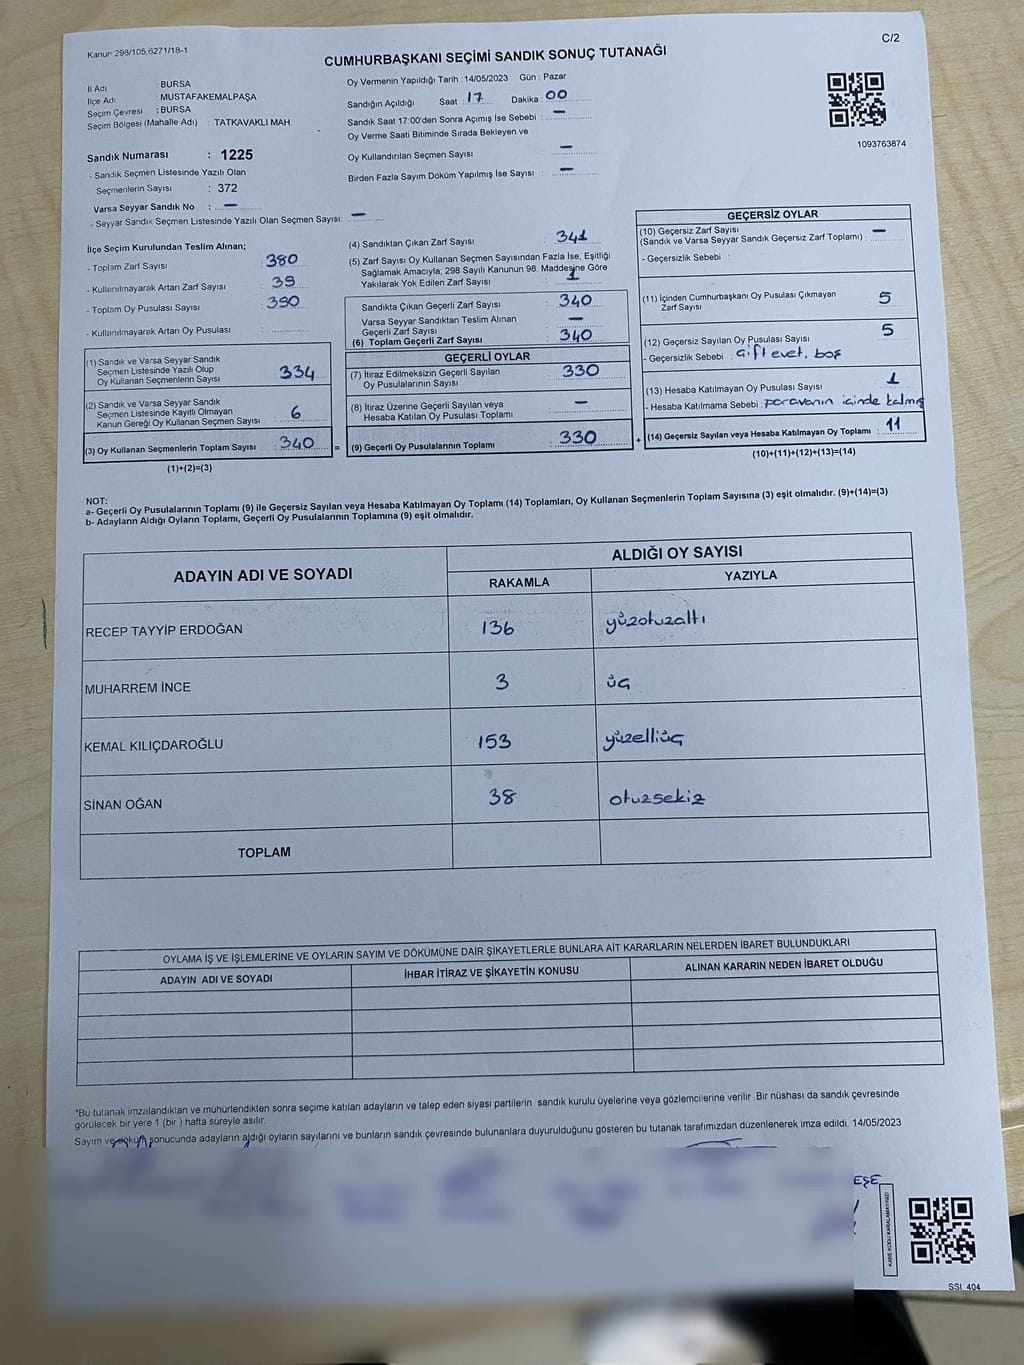 Kanun 298/105,6271/18-1
C/2
CUMHURBAŞKANI SEÇİMİ SANDIK SONUÇ TUTANAĞI
İl Adı : BURSA
İlçe Adı : MUSTAFAKEMALPAŞA
Seçim Çevresi : BURSA
Seçim Bölgesi (Mahalle Adı) : TATKAVAKLI MAH.
Sandık Numarası : 1225
- Sandık Seçmen Listesinde Yazılı Olan
Seçmenlerin Sayısı : 372
Varsa Seyyar Sandık No : —
- Seyyar Sandık Seçmen Listesinde Yazılı Olan Seçmen Sayısı: —
Oy Vermenin Yapıldığı Tarih : 14/05/2023 Gün : Pazar
Sandığın Açıldığı Saat : 17 Dakika : 00
Sandık Saat 17:00'den Sonra Açımış İse Sebebi : —
Oy Verme Saati Bitiminde Sırada Bekleyen ve
Oy Kullandırılan Seçmen Sayısı —
Birden Fazla Sayım Döküm Yapılmış İse Sayısı : —
1093763874
İlçe Seçim Kurulundan Teslim Alınan;
- Toplam Zarf Sayısı : 380
- Kullanılmayarak Artan Zarf Sayısı : 39
- Toplam Oy Pusulası Sayısı : 390
- Kullanılmayarak Artan Oy Pusulası :
(1) Sandık ve Varsa Seyyar Sandık
Seçmen Listesinde Yazılı Olup
Oy Kullanan Seçmenlerin Sayısı : 334
(2) Sandık ve Varsa Seyyar Sandık
Seçmen Listesinde Kayıtlı Olmayan
Kanun Gereği Oy Kullanan Seçmen Sayısı : 6
(3) Oy Kullanan Seçmenlerin Toplam Sayısı : 340 =
(1)+(2)=(3)
(4) Sandıktan Çıkan Zarf Sayısı : 341
(5) Zarf Sayısı Oy Kullanan Seçmen Sayısından Fazla İse, Eşitliği
Sağlamak Amacıyla; 298 Sayılı Kanunun 98. Maddesine Göre
Yakılarak Yok Edilen Zarf Sayısı : 1
Sandıkta Çıkan Geçerli Zarf Sayısı : 340
Varsa Seyyar Sandıktan Teslim Alınan
Geçerli Zarf Sayısı : —
(6) Toplam Geçerli Zarf Sayısı : 340
GEÇERLİ OYLAR
(7) İtiraz Edilmeksizin Geçerli Sayılan
Oy Pusulalarının Sayısı : 330
(8) İtiraz Üzerine Geçerli Sayılan veya
Hesaba Katılan Oy Pusulası Toplamı : —
(9) Geçerli Oy Pusulalarının Toplamı : 330 +
GEÇERSİZ OYLAR
(10) Geçersiz Zarf Sayısı : —
(Sandık ve Varsa Seyyar Sandık Geçersiz Zarf Toplamı)
- Geçersizlik Sebebi :
(11) İçinden Cumhurbaşkanı Oy Pusulası Çıkmayan
Zarf Sayısı : 5
(12) Geçersiz Sayılan Oy Pusulası Sayısı : 5
- Geçersizlik Sebebi : çift evet, boş
(13) Hesaba Katılmayan Oy Pusulası Sayısı : 1
- Hesaba Katılmama Sebebi : paravanın içinde kalmış
(14) Geçersiz Sayılan veya Hesaba Katılmayan Oy Toplamı : 11
(10)+(11)+(12)+(13)=(14)
NOT:
a- Geçerli Oy Pusulalarının Toplamı (9) ile Geçersiz Sayılan veya Hesaba Katılmayan Oy Toplamı (14) Toplamları, Oy Kullanan Seçmenlerin Toplam Sayısına (3) eşit olmalıdır. (9)+(14)=(3)
b- Adayların Aldığı Oyların Toplamı, Geçerli Oy Pusulalarının Toplamına (9) eşit olmalıdır.
ADAYIN ADI VE SOYADI
ALDIĞI OY SAYISI
RAKAMLA YAZIYLA
RECEP TAYYİP ERDOĞAN 136 yüzotuzaltı
MUHARREM İNCE 3 üç
KEMAL KILIÇDAROĞLU 153 yüzelliüç
SİNAN OĞAN 38 otuzsekiz
TOPLAM
OYLAMA İŞ VE İŞLEMLERİNE VE OYLARIN SAYIM VE DÖKÜMÜNE DAİR ŞİKAYETLERLE BUNLARA AİT KARARLARIN NELERDEN İBARET BULUNDUKLARI
ADAYIN ADI VE SOYADI İHBAR İTİRAZ VE ŞİKAYETİN KONUSU ALINAN KARARIN NEDEN İBARET OLDUĞU
*Bu tutanak imzalandıktan ve mühürlendikten sonra seçime katılan adayların ve talep eden siyasi partilerin sandık kurulu üyelerine veya gözlemcilerine verilir .Bir nüshası da sandık çevresinde
görülecek bir yere 1 (bir ) hafta süreyle asılır.
Sayım ve döküm sonucunda adayların aldığı oyların sayılarını ve bunların sandık çevresinde bulunanlara duyurulduğunu gösteren bu tutanak tarafımızdan düzenlenerek imza edildi. 14/05/2023
EŞE
KARE KODU KARALAMAYINIZ!
SSİ 404